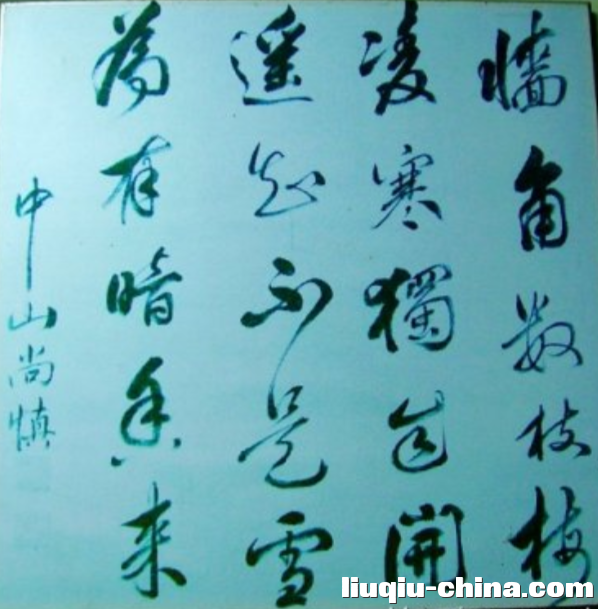 牆角數枝梅
凌寒獨自開
遥知不是雪
為有暗香来
中山尚慎
liuqiu-china.com